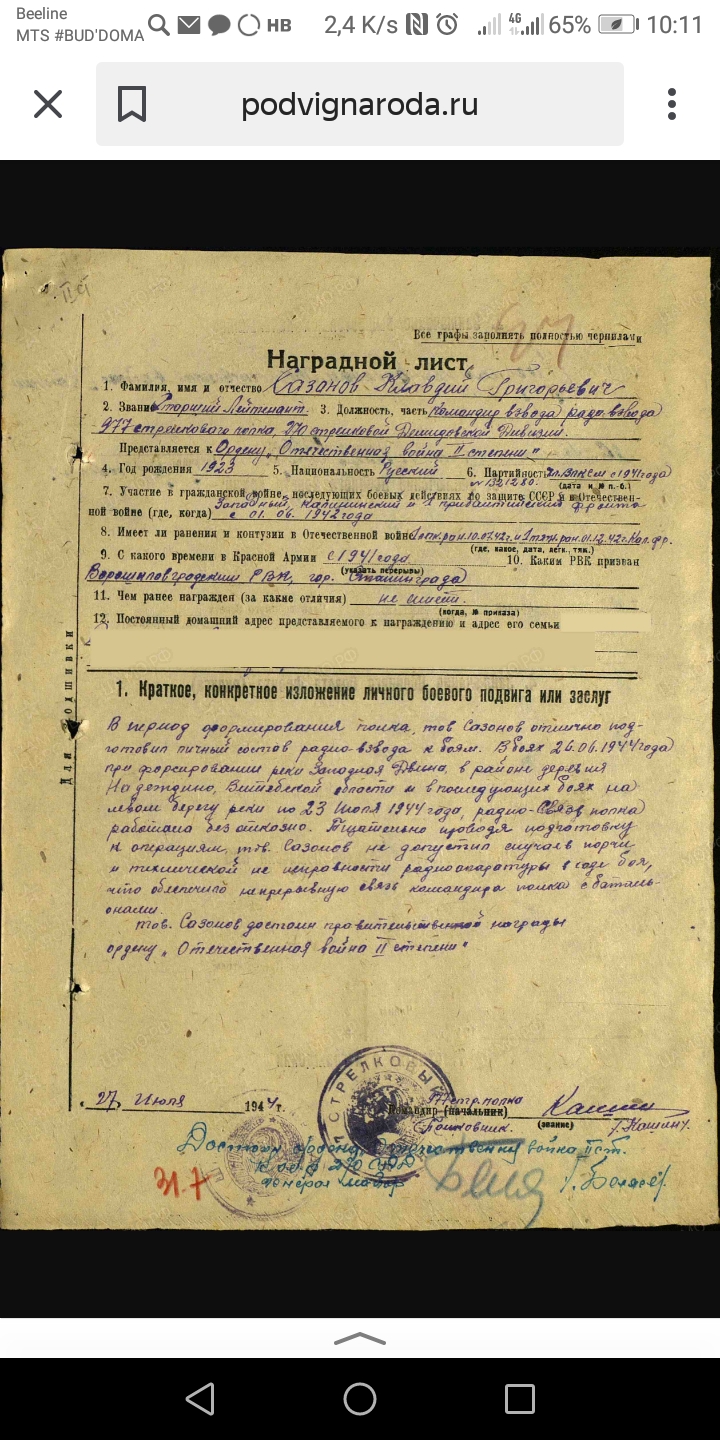 Beeline
MTS #BUD'DOMA
НВ 2,4 K/s 4G 65% 10:11
podvignaroda.ru
II ст
Все графы заполнять полностью чернилами
Наградной лист
1. Фамилия, имя и отчество Сазонов Клавдий Григорьевич
2. Звание Старший Лейтенант. 3. Должность, часть командир взвода радио-взвода
977 стрелкового полка, 270 стрелковой Демидовской Дивизии.
Представляется к Ордену „Отечественная война II степени"
4. Год рождения 1923 5. Национальность Русский 6. Партийность чл. ВЛКСМ с 1941 года
№ 1321280. (дата и № п.-б.)
7. Участие в гражданской войне, последующих боевых действиях по защите СССР и в Отечествен-
Западный, Калининский и 1 прибалтийский фронт
ной войне (где, когда) с 01.06.1942 года
8. Имеет ли ранения и контузии в Отечественной войне 10.07.42г. 01.12.42г. Кал. фр.
(где, какое, дата, легк., тяж.)
9. С какого времени в Красной Армии с 1941 года 10. Каким РВК призван
(указать перерывы)
Ворошиловградским РВК, гор. Сталинграда
11. Чем ранее награжден (за какие отличия) не имеет.
(когда, № приказа)
12. Постоянный домашний адрес представляемого к награждению и адрес его семьи
Для подшивки
1. Краткое, конкретное изложение личного боевого подвига или заслуг
В период формирования полка, тов Сазонов отлично под-
готовил личный состав радио-взвода к боям. В боях 26.06.1944 года
при форсировании реки Западная Двина, в районе деревня
Надеждино, Витебской области и в последующих боях на
левом берегу реки по 23 Июля 1944 года, радио-связь полка
работала безотказно. Тщательно проводя подготовку
к операциям, тов. Сазонов не допустил случаев порчи
и технической не исправности радиоаппаратуры в ходе боя,
что обеспечило непрерывную связь командира полка с баталь-
онами.
тов. Сазонов достоин правительственной награды
ордену „Отечественная война II степени"
27 Июля 1944 г.
СТРЕЛКОВЫЙ
977 стр. полка
Командир (начальник)
Полковник. (звание) /Кашин/.
Достоин ордена Отечественную война II ст.
К-р 270 СДД
Генерал майор /Беляев/.
31.7